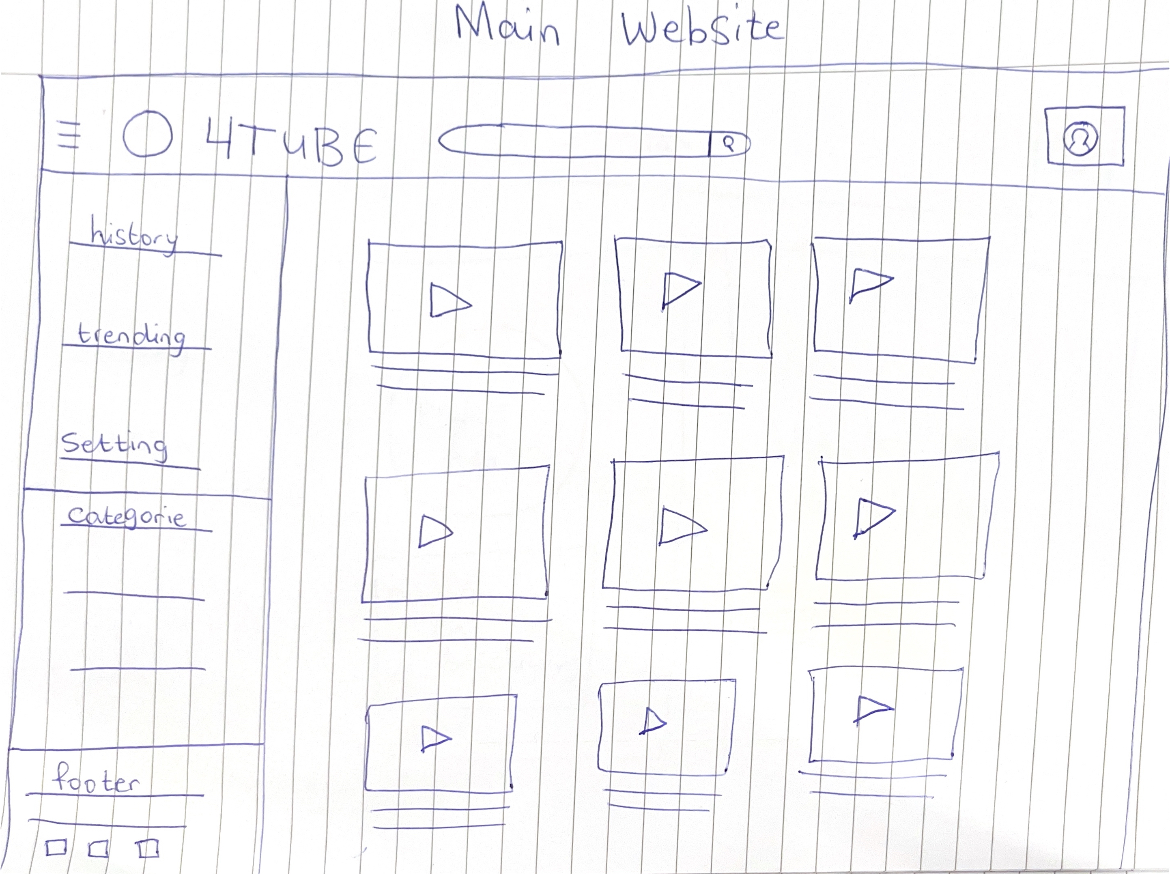 Main Website
4TUBE
history
trending
Setting
categorie
footer